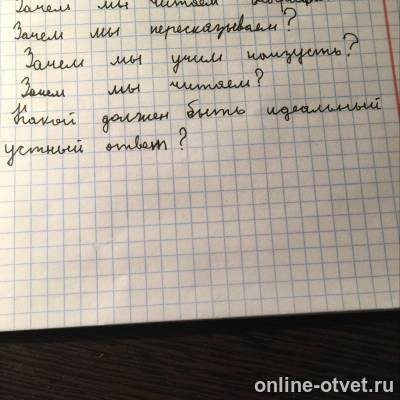 Зачем мы читаем
Зачем мы пересказываем?
Зачем мы учим наизусть?
Зачем мы читаем?
Какой должен быть идеальный
устный ответ?
online-otvet.ru